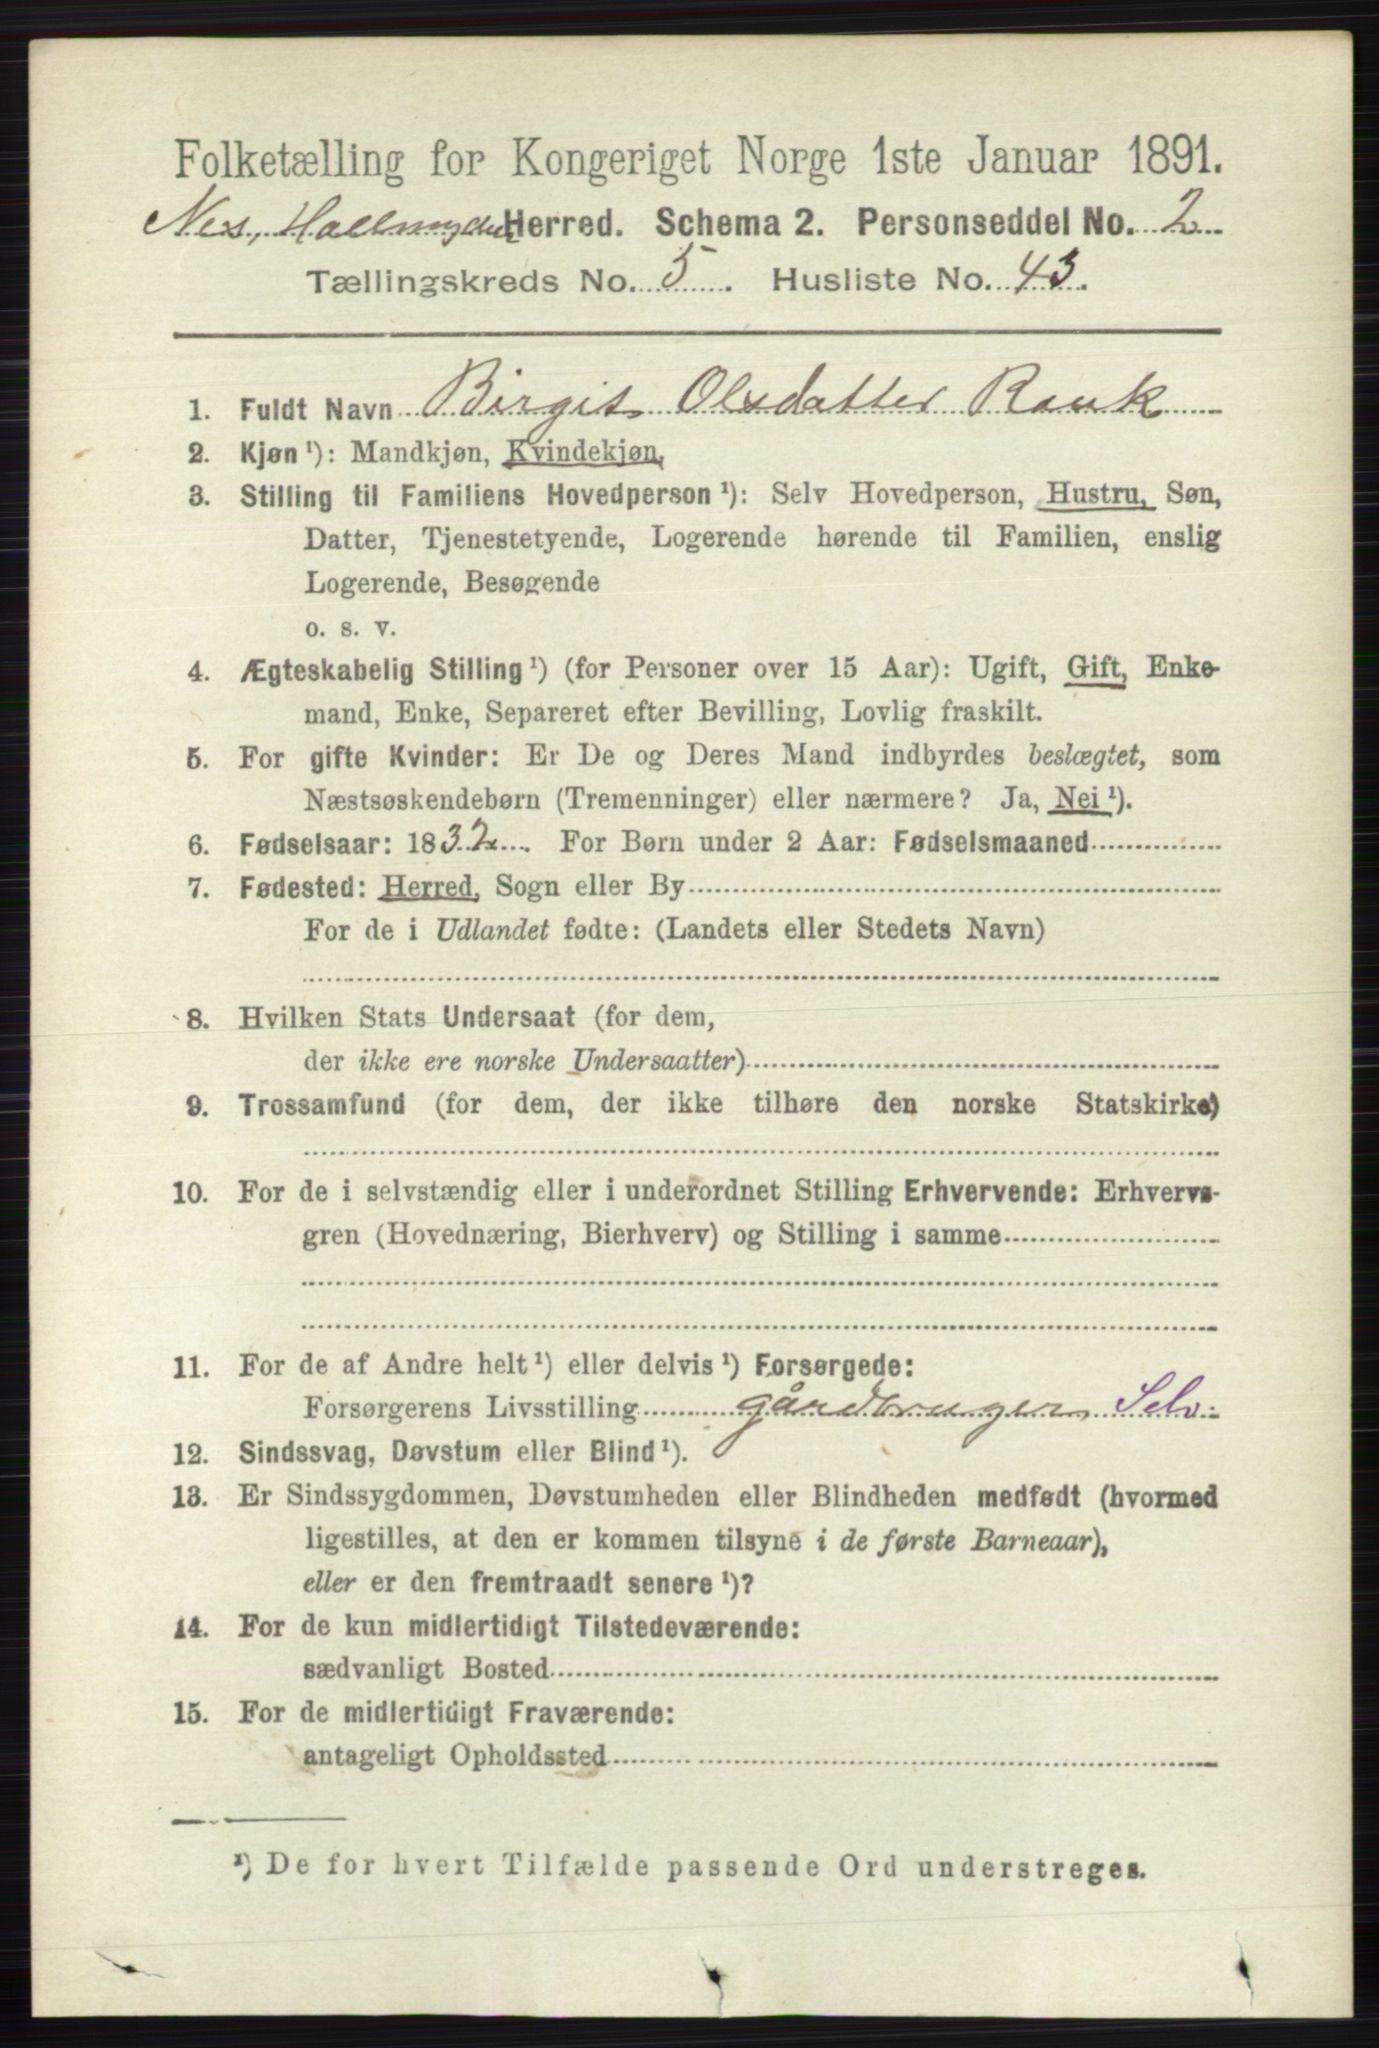 Folketælling for Kongeriget Norge 1ste Januar 1891.
Nes, Herred. Schema 2. Personseddel No. 2
Tællingskreds No. 5. Husliste No. 43.
1. Fuldt Navn Birgit Olsdatter Rauk
2. Kjøn ¹): Mandkjøn, Kvindekjøn,
3. Stilling til Familiens Hovedperson ¹): Selv Hovedperson, Hustru, Søn,
Datter, Tjenestetyende, Logerende hørende til Familien, enslig
Logerende, Besøgende
o. s. v.
4. Ægteskabelig Stilling ¹) (for Personer over 15 Aar): Ugift, Gift, Enke-
mand, Enke, Separeret efter Bevilling, Lovlig fraskilt.
5. For gifte Kvinder: Er De og Deres Mand indbyrdes beslægtet, som
Næstsøskendebørn (Tremenninger) eller nærmere? Ja, Nei ¹).
6. Fødselsaar: 1832. For Børn under 2 Aar: Fødselsmaaned
7. Fødested: Herred, Sogn eller By
For de i Udlandet fødte: (Landets eller Stedets Navn)
8. Hvilken Stats Undersaat (for dem,
der ikke ere norske Undersaatter)
9. Trossamfund (for dem, der ikke tilhøre den norske Statskirke)
10. For de i selvstændig eller i underordnet Stilling Erhvervende: Erhvervs-
gren (Hovednæring, Bierhverv) og Stilling i samme
11. For de af Andre helt ¹) eller delvis ¹) Forsørgede:
Forsørgerens Livsstilling gårdbruger, Selv.
12. Sindssvag, Døvstum eller Blind ¹).
13. Er Sindssygdommen, Døvstumheden eller Blindheden medfødt (hvormed
ligestilles, at den er kommen tilsyne i de første Barneaar),
eller er den fremtraadt senere ¹)?
14. For de kun midlertidigt Tilstedeværende:
sædvanligt Bosted
15. For de midlertidigt Fraværende:
antageligt Opholdssted
¹) De for hvert Tilfælde passende Ord understreges.